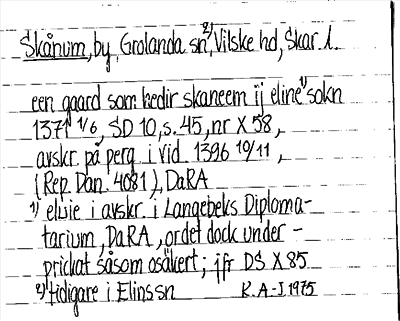 Skånum, by, Grolanda sn²⁾, Vilske hd, Skar. l.
een gaard som hedir skaneem ij eline¹⁾ sokn
1371 1/6, SD 10, s. 45, nr X 58,
avskr. på perg. i vid. 1396 10/11,
(Rep. Dan. 4081), DaRA
1) elsie i avskr. i Langebeks Diploma-
tarium, DaRA, ordet dock under-
prickat såsom osäkert; jfr DS X 85
2) tidigare i Elins sn K.A-J. 1975